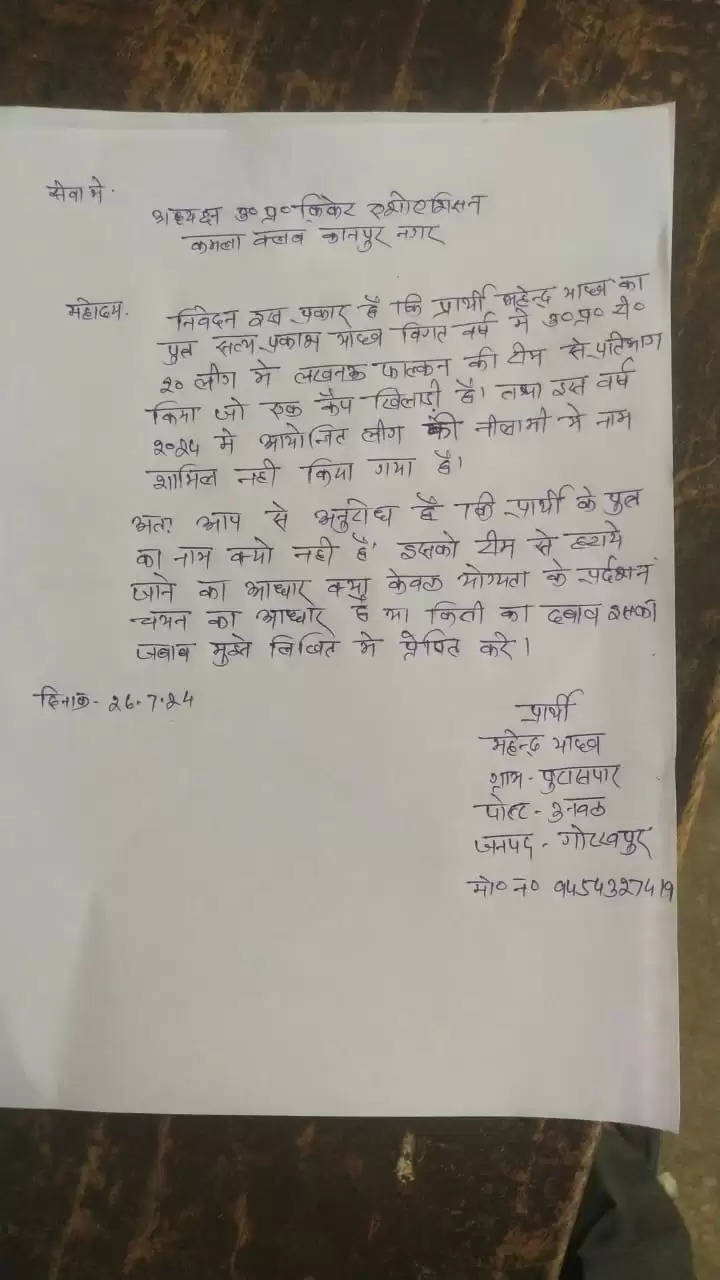 सेवा मे.
अध्यक्ष उ०प्र० क्रिकेट एशोएसिसन
कमला क्लब कानपुर नगर
महोदय.
निवेदन इस प्रकार है कि प्रार्थी महेन्द्र यादव का
पुत्र सत्य प्रकाश यादव विगत वर्ष मे उ०प्र० टी०
२० लीग मे लखनऊ फाल्कन की टीम से प्रतिभाग
किया जो एक कैप खिलाडी है। तथा इस वर्ष
२०२४ मे आयोजित लीग की नीलामी मे नाम
शामिल नही किया गया है।
अतः आप से अनुरोध है कि प्रार्थी के पुत्र
का नाम क्यो नही है, इसको टीम से हटाये
जाने का आधार क्या केवल योग्यता के पर्दशन
चयन का आधार है या किसी का दबाव इसकी
जबाब मुझे लिखित मे प्रेषित करे।
दिनाक- 26.7.24
प्रार्थी
महेन्द्र यादव
ग्राम- पुरासपार
पोस्ट- उनवल
जनपद - गोरखपुर
मो० न० 9454327419